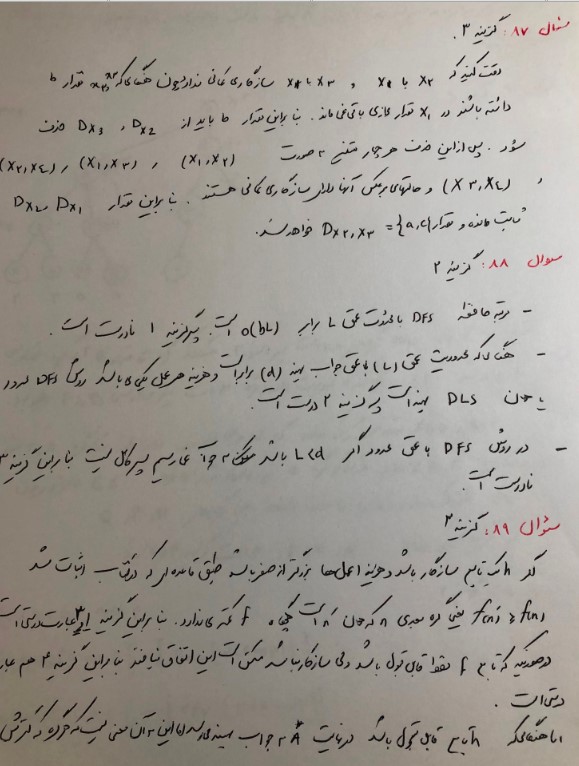 سئوال ۸۷: گزینه ۳.
دقت کنید که X۲ با X۱ و X۳ با X۱ سازگاری کمانی ندارد چون هنگامی که مقدار b
داشته باشند در X۱ مقدار مجازی باقی نمی‌ماند. بنابراین مقدار b باید از DX2 و DX3 حذف
شود. پس از این حذف هر چهار متغیر به صورت (X۱,X۲) و (X۱,X۳) و (X۲,X۴)
و (X۳,X۴) و حالتهای برعکس آنها دارای سازگاری کمانی هستند. بنابراین مقدار DX1 و DX4
ثابت مانده و مقدار DX۲,X۳ = {a,c} خواهد شد.
سوال ۸۸: گزینه ۲
- مرتبه حافظه DFS با محدودیت عمق L برابر O(bL) است. پس گزینه ۱ نادرست است.
- هنگامی که محدودیت عمق (L) با عمق جواب بهینه (d) برابر است و هزینه هر عمل یکی می‌باشد روش DFS محدود
یا همان DLS بهینه است پس گزینه ۲ درست است.
- در روش DFS با عمق محدود اگر L<d باشد ممکن به جواب نمی‌رسیم پس کامل نیست بنابراین گزینه ۳
نادرست است.
سئوال ۸۹: گزینه ۲
اگر h یک تابع سازگار باشد و هزینه اعمل‌ها بزرگتر از صفر باشد طبق قاعده‌ای که در کتاب اثبات شد
f(n') ≥ f(n) یعنی گره بعدی n که همان n' است هیچگاه f کمتری ندارد. بنابراین گزینه ۳ عبارت درستی است
در صورتی که تابع f فقط قابل قبول باشد ولی سازگار نباشد ممکن است این اتفاق نیافتد بنابراین گزینه ۴ هم عبارت
درستی است.
اما هنگامی که h تابع قابل قبول باشد در نهایت A* به جواب بهینه می‌رسد اما این به آن معنی نیست که هر گره که گسترش